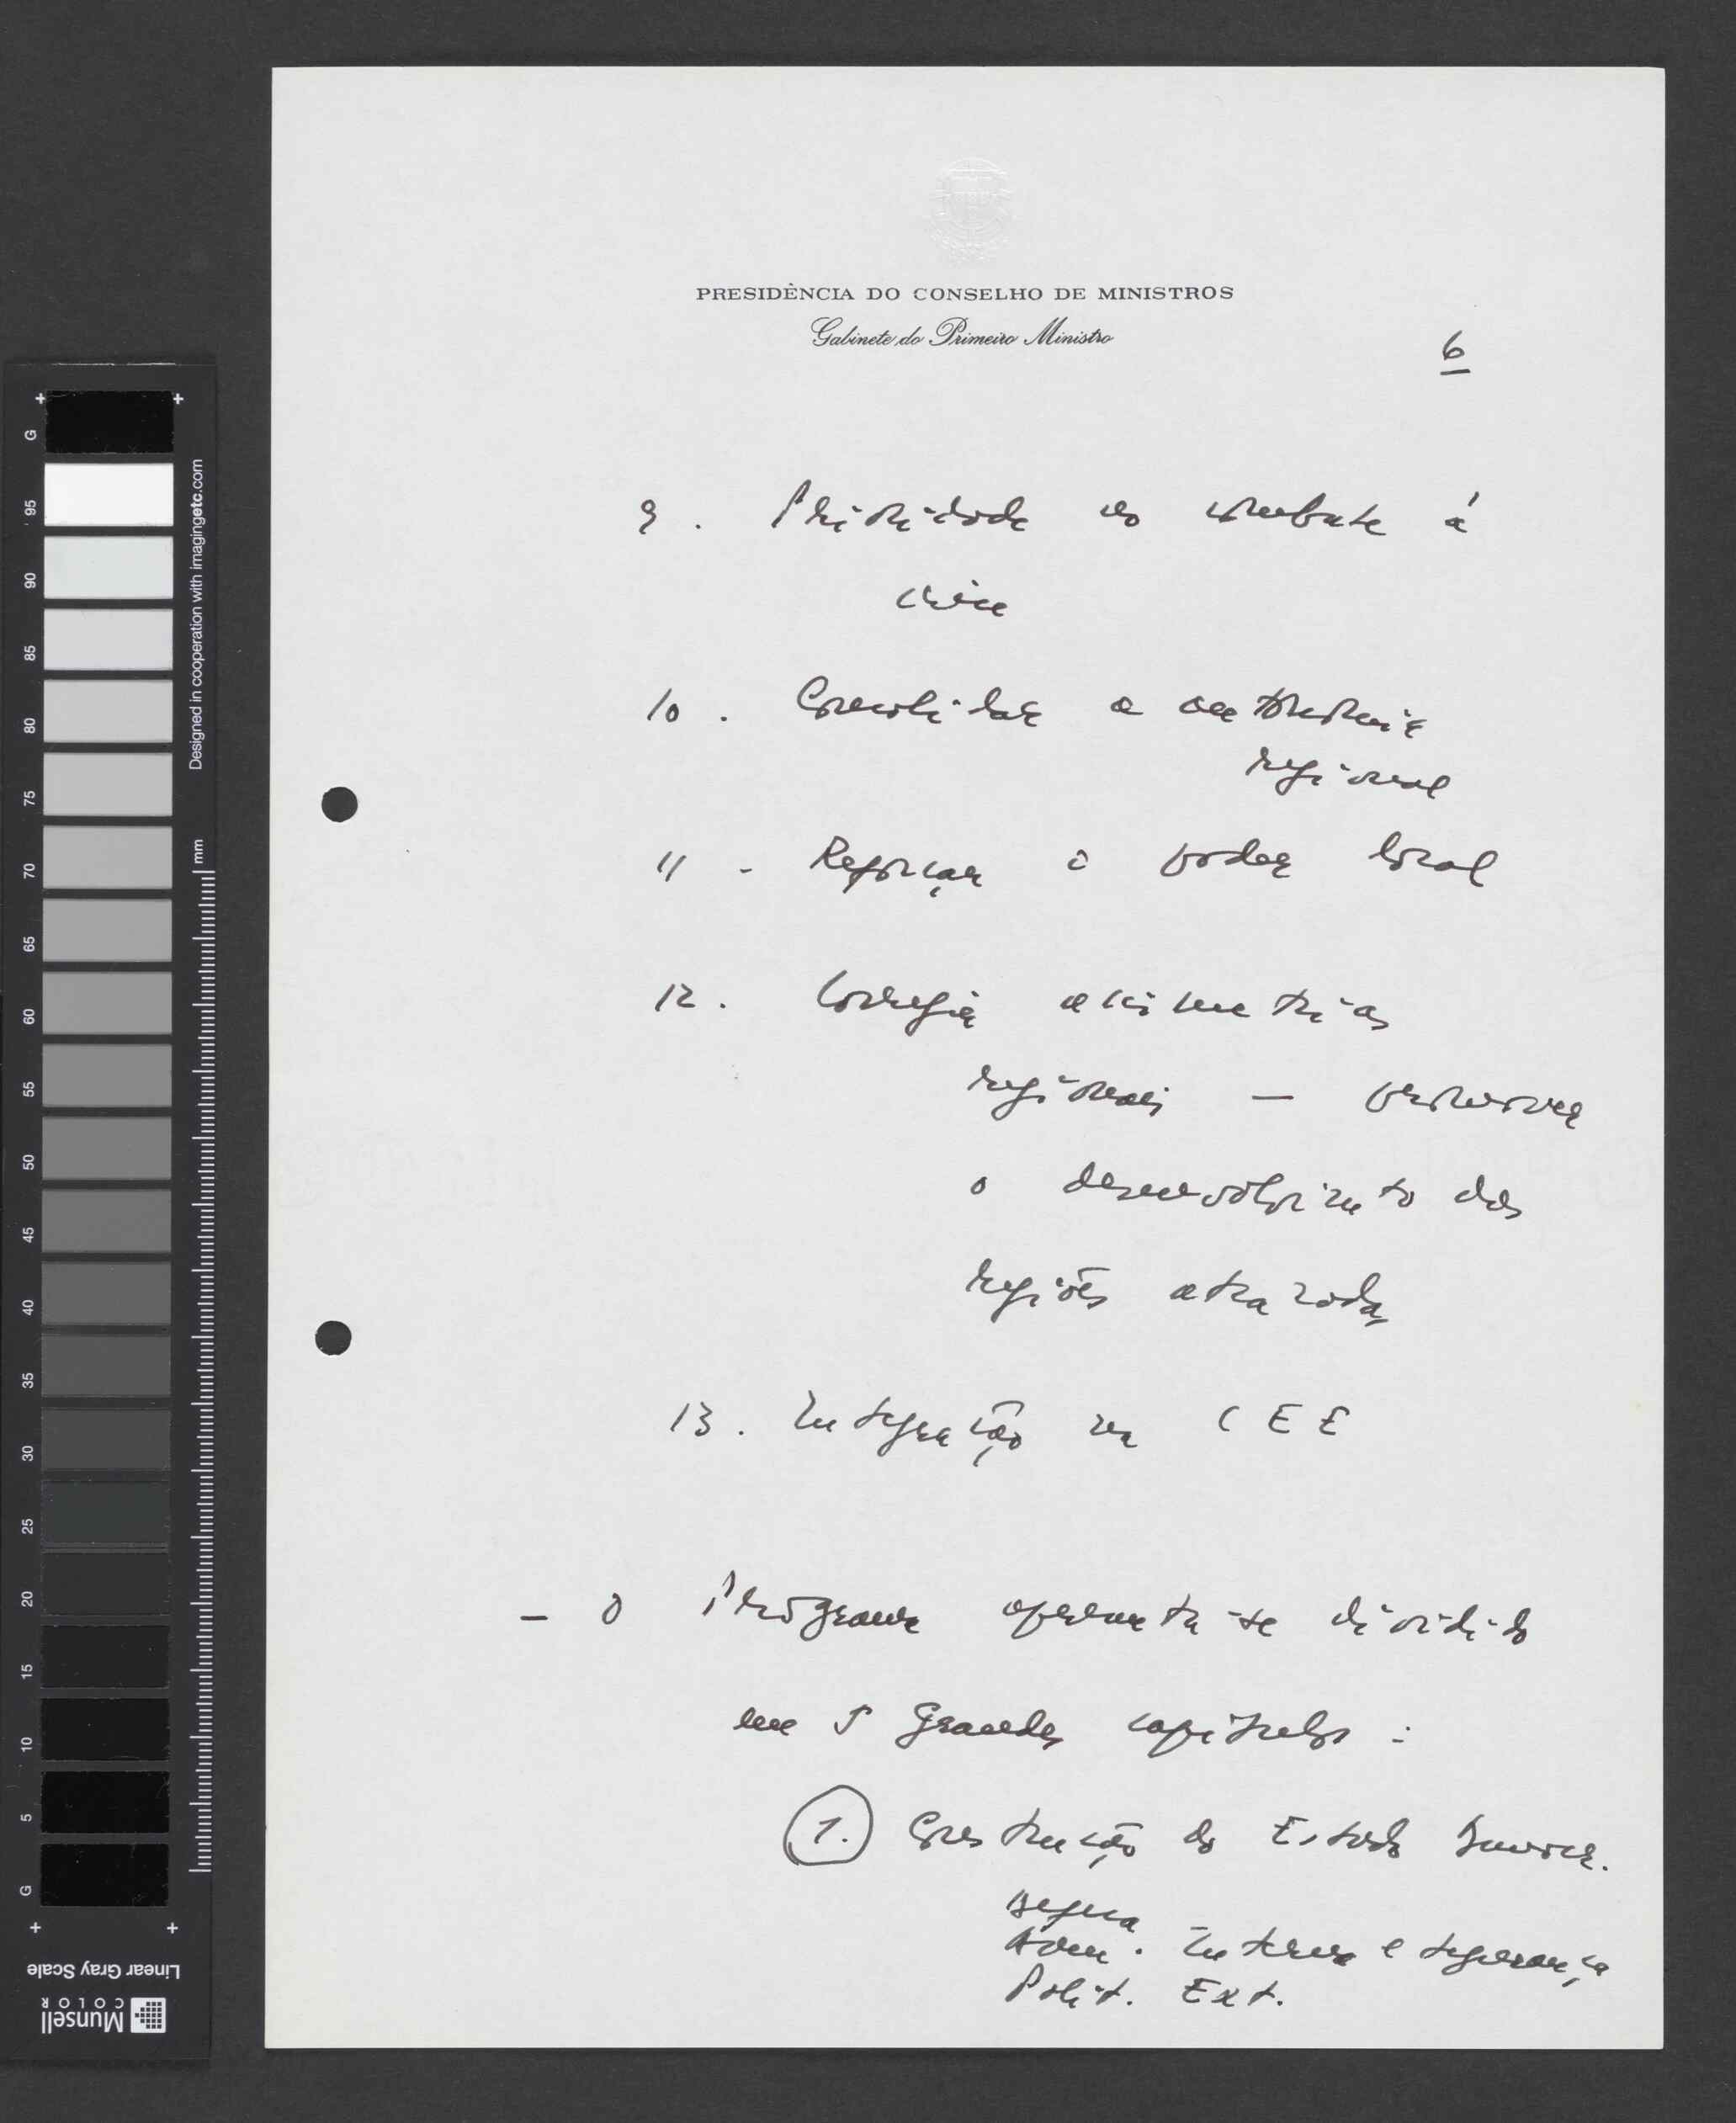 PRESIDÊNCIA DO CONSELHO DE MINISTROS
Gabinete do Primeiro Ministro
6
9. Prioridade ao combate á
crise
10. Consolidar a autonomia
regional
11 - Reforçar o poder local
12. Corrigir assimetrias
regionais — promover
o desenvolvimento das
regiões atrazadas
13. Integração na CEE
- O Programa apresenta-se dividido
em 5 Grandes capítulos:
1. Construção do Estado Democr.
Defesa
Adm. Interna e Segurança
Polit. Ext.
G 95 90 85 80 75 70 65 60 55 50 45 40 35 30 25 20 15 10 5 G
Designed in cooperation with imagingetc.com
mm
Linear Gray Scale
Munsell
COLOR